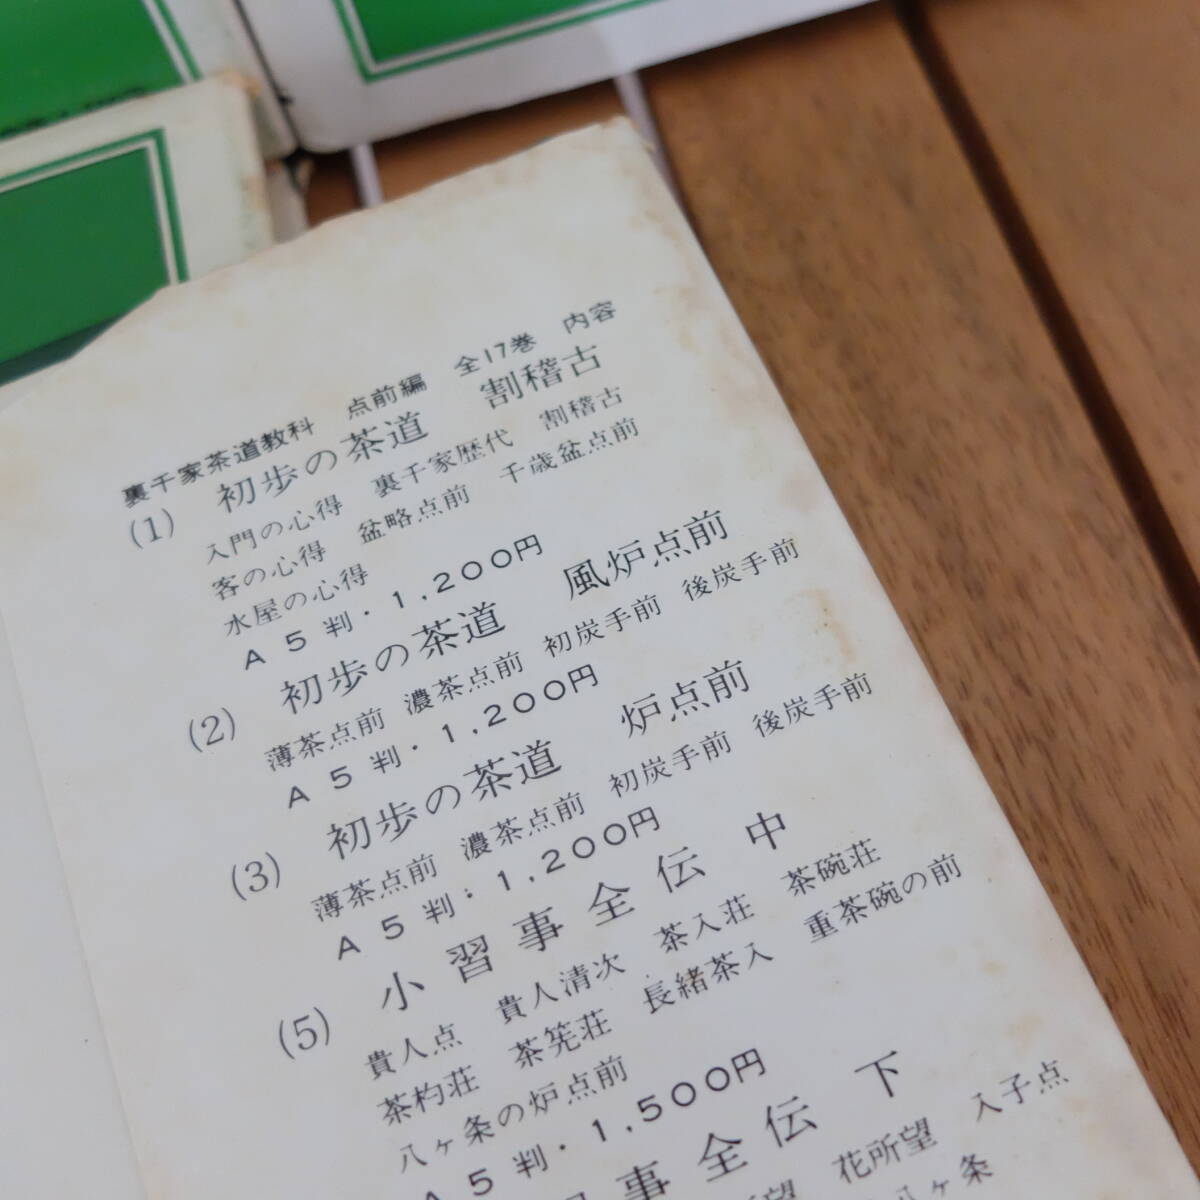 裏千家茶道教科 点前編 全17巻 内容
(1) 初歩の茶道 割稽古
入門の心得 裏千家歴代 割稽古
客の心得 盆略点前 千歳盆点前
水屋の心得
A5判・1,200円
(2) 初歩の茶道 風炉点前
薄茶点前 濃茶点前 初炭手前 後炭手前
A5判・1,200円
(3) 初歩の茶道 炉点前
薄茶点前 濃茶点前 初炭手前 後炭手前
A5判・1,200円
(5) 小習事全伝 中
貴人点 貴人清次 茶入荘 茶碗荘
茶杓荘 茶筅荘 長緒茶入 重茶碗の前
八ヶ条の炉点前
A5判・1,500円
習事全伝 下
花所望 入子点
八ヶ条